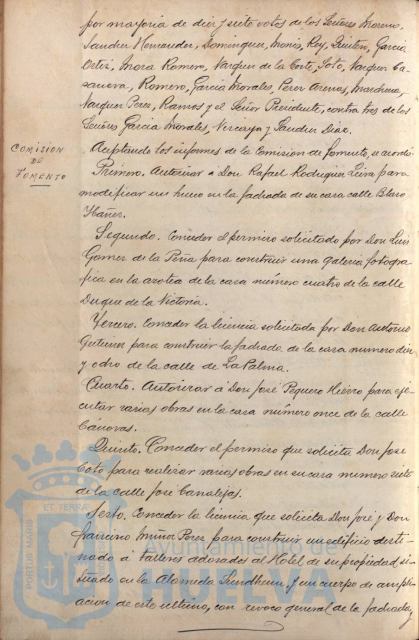 por mayoria de diez y siete votos de los Señores Moreno,
Sanchez Hernandez, Dominguez, Monis, Rey, Quintero, Garcia
Ortiz, Mora Romero, Vazquez de la Corte, Soto, Vazquez Ca-
sanova, Romero, Garcia Morales, Perez Arenas, Marchena,
Vazquez Perez, Ramos y el Señor Presidente, contra tres de los
Señores Garcia Morales, y Sanchez Diaz.
COMISION
DE
FOMENTO
Aceptando los informes de la Comision de fomento, se acordó:
Primero. Autorizar a Don Rafael Rodriguez para
modificar un hueco en la fachada de su casa calle Blasco
Ibañez.
Segundo. Conceder el permiso solicitado por Don Luis
Gomez de la Peña para construir una galeria fotogra-
fica en la azotea de la casa número cuatro de la calle
Duque de la Victoria.
Tercero. Conceder la licencia solicitada por Don Antonio
Gutierrez para construir la fachada de la casa numero diez
y ocho de la calle de La Palma.
Cuarto. Autorizar á Don José Peguero Hierro para eje-
cutar varias obras en la casa número once de la calle
Cánovas.
Quinto. Conceder el permiso que solicita Don José
Coto para realizar varias obras en su casa numero siete
de la calle José Canalejas.
Sexto. Conceder la licencia que solicita Don José y Don
Francisco Muñoz Perez para construir un edificio desti-
nado á talleres adosados al Hotel de su propiedad si-
tuado en la Alameda Sundheim, y un cuerpo de ampli-
acion de este ultimo, con revoco general de la fachada,
PORTUS MARIS
ET TERRAE
Ayuntamiento de
HUELVA